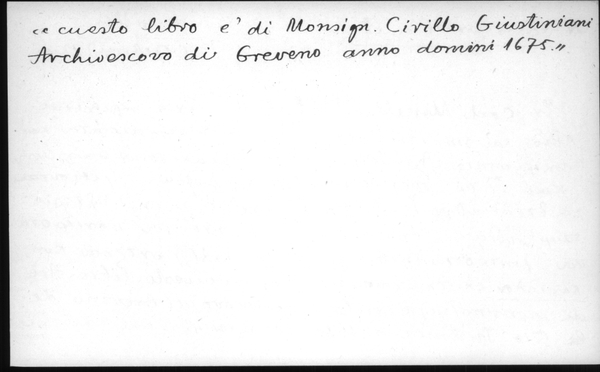 « cuesto libro e' di Monsign. Civillo Giustiniani
Archivescovo di Greveno anno domini 1675.»